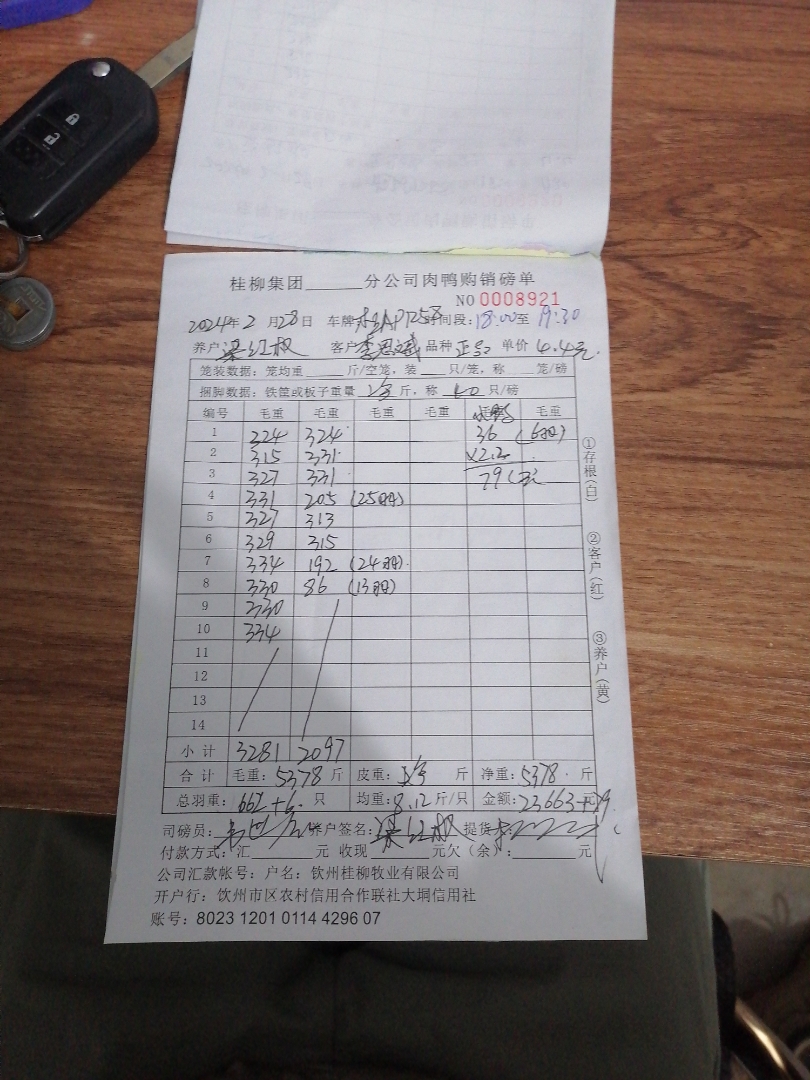 桂柳集团______分公司肉鸭购销磅单
NO 0008921
2024年2月28日 车牌 时间段:18:00至19:30
养户 梁红权 客户 李思斌 品种 正品 单价 4.4元
笼装数据:笼均重____斤/空笼,装____只/笼,称____笼/磅
捆脚数据:铁筐或板子重量 斤,称 40 只/磅
编号 毛重 毛重 毛重 毛重 毛重
1 324 324 36 (6羽)
2 315 331 ×2.2
3 327 331 79
4 331 205 (25羽)
5 327 313
6 329 315
7 334 192 (24羽)
8 330 86 (13羽)
9 330
10 334
11
12
13
14
小计 3281 2097
合计 毛重:5378斤 皮重: 斤 净重:5378斤
总羽重:662+6只 均重:8.12斤/只 金额:23663元+79
司磅员: 养户签名:梁红权 提货人:
付款方式:汇______元 收现______元欠(余):______元
公司汇款帐号:户名:钦州桂柳牧业有限公司
开户行:钦州市区农村信用合作联社大垌信用社
账号:8023 1201 0114 4296 07
①存根(白)
②客户(红)
③养户(黄)